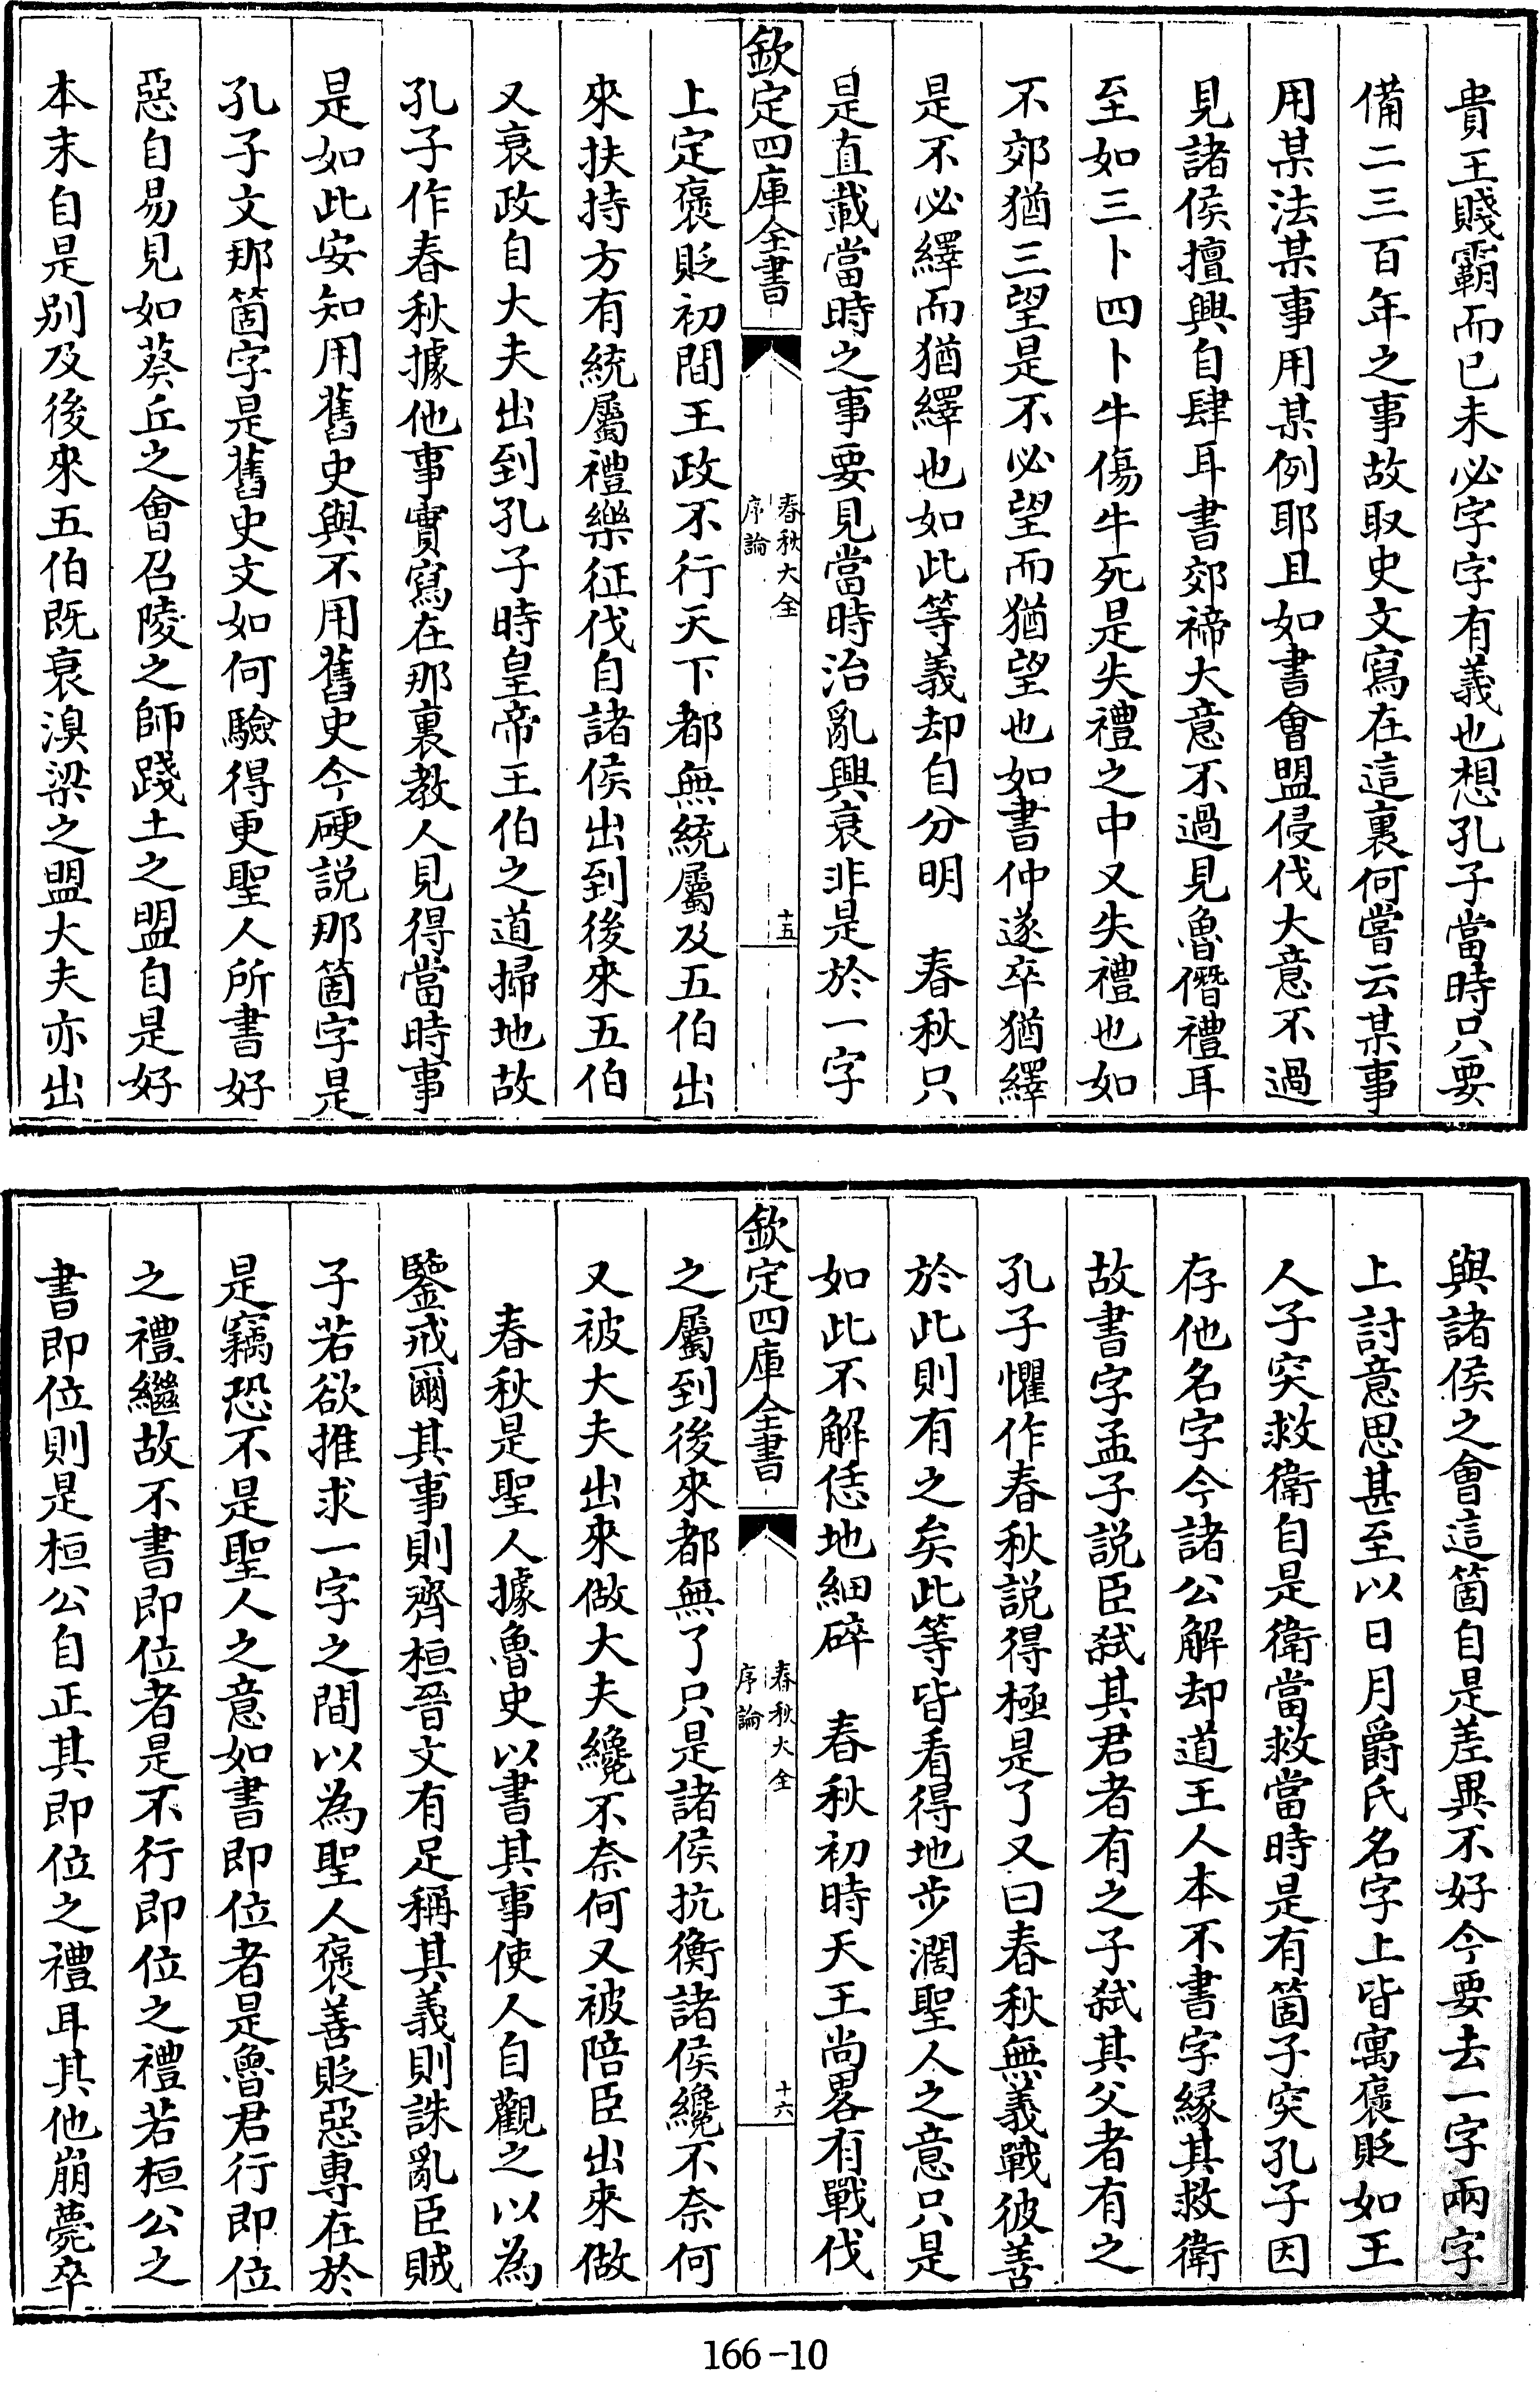 貴王賤霸而已未必字字有義也想孔子當時只要
備二三百年之事故取史文寫在這裏何嘗云某事
用某法某事用某例耶且如書會盟侵伐大意不過
見諸侯擅興自肆耳書郊禘大意不過見魯僭禮耳
至如三卜四卜牛傷牛死是失禮之中又失禮也如
不郊猶三望是不必望而猶望也如書仲遂卒猶繹
是不必繹而猶繹也如此等義却自分明　春秋只
是直載當時之事要見當時治亂興衰非是於一字
欽定四庫全書
春秋大全
序論
十五
上定褒貶初間王政不行天下都無統屬及五伯出
來扶持方有統屬禮樂征伐自諸侯出到後來五伯
又衰政自大夫出到孔子時皇帝王伯之道掃地故
孔子作春秋據他事實寫在那裏教人見得當時事
是如此安知用舊史與不用舊史今硬説那箇字是
孔子文那箇字是舊史文如何驗得更聖人所書好
惡自易見如葵丘之會召陵之師踐土之盟自是好
本末自是别及後來五伯既衰溴梁之盟大夫亦出
與諸侯之會這箇自是差異不好今要去一字兩字
上討意思甚至以日月爵氏名字上皆寓褒貶如王
人子突救衛自是衛當救當時是有箇子突孔子因
存他名字今諸公解却道王人本不書字緣其救衛
故書字孟子説臣弑其君者有之子弑其父者有之
孔子懼作春秋説得極是了又曰春秋無義戰彼善
於此則有之矣此等皆看得地步濶聖人之意只是
如此不解恁地細碎　春秋初時天王尚畧有戰伐
欽定四庫全書
春秋大全
序論
十六
之屬到後來都無了只是諸侯抗衡諸侯纔不奈何
又被大夫出來做大夫纔不奈何又被陪臣出來做
春秋是聖人據魯史以書其事使人自觀之以為
鑒戒爾其事則齊桓晉文有足稱其義則誅亂臣賊
子若欲推求一字之間以為聖人褒善貶惡專在於
是竊恐不是聖人之意如書即位者是魯君行即位
之禮繼故不書即位者是不行即位之禮若桓公之
書即位則是桓公自正其即位之禮耳其他崩薨卒
166-10